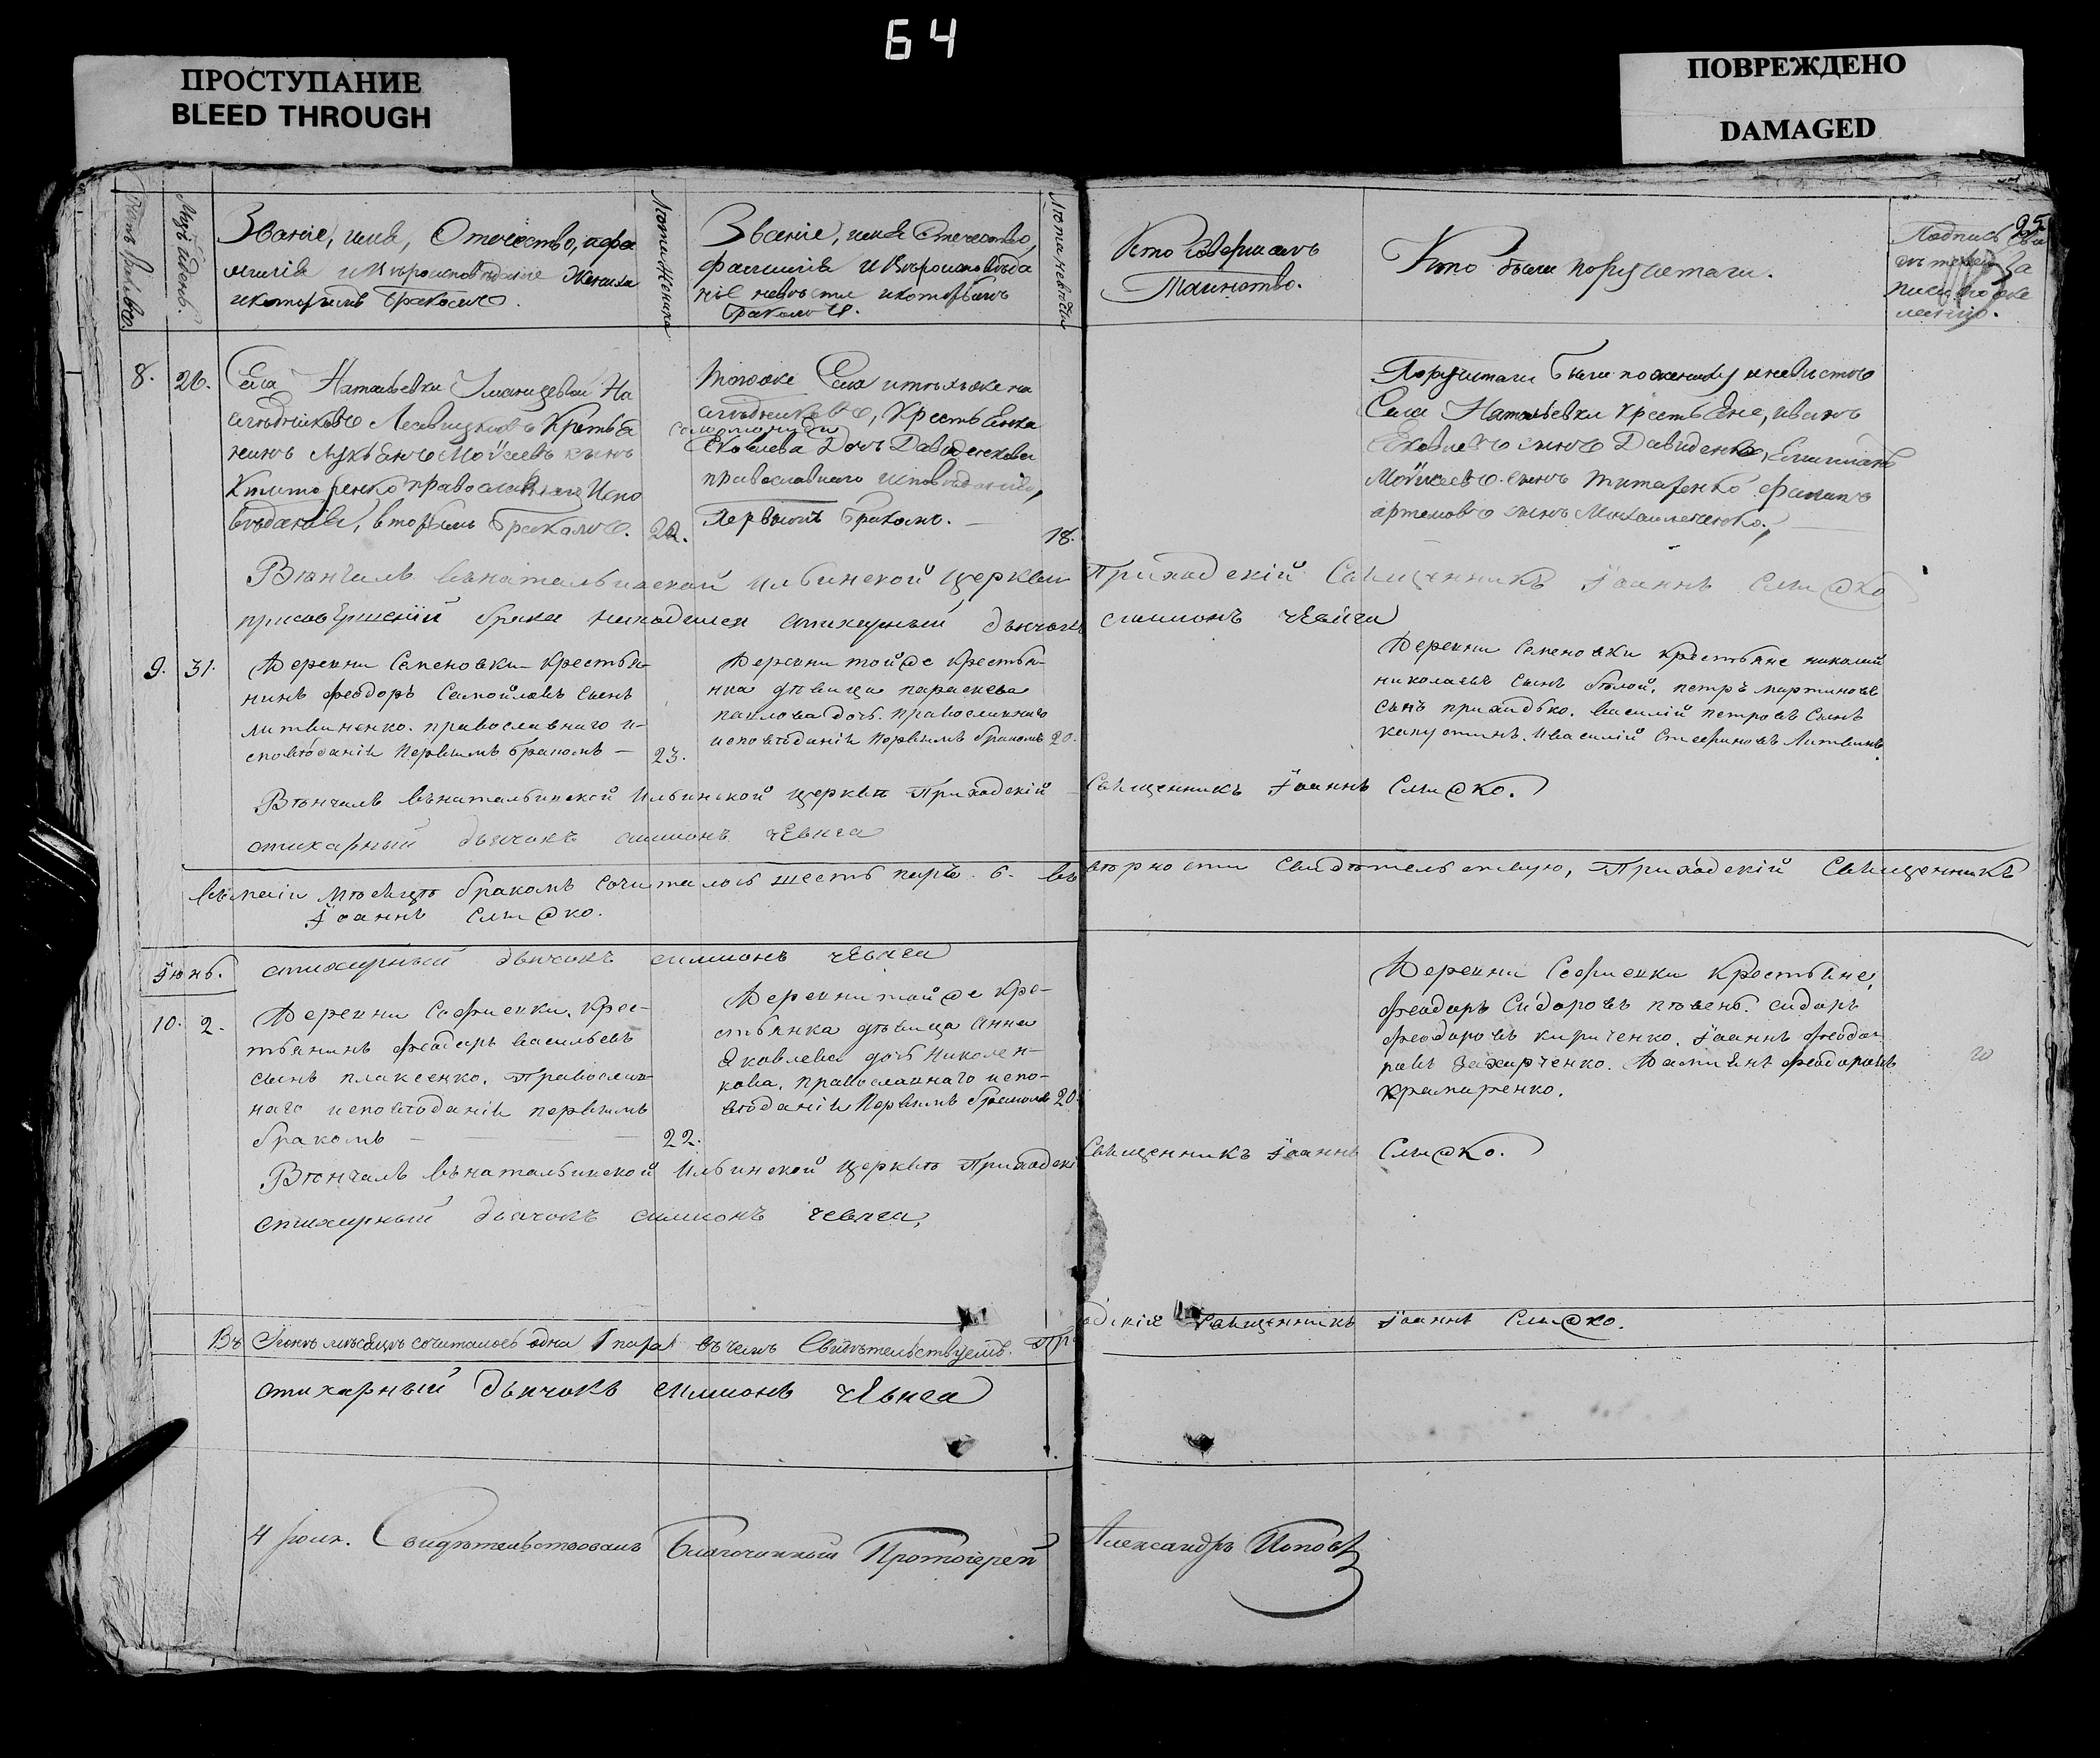 64
ПРОСТУПАНИЕ
BLEED THROUGH
ПОВРЕЖДЕНО
DAMAGED
95
Мѣсяцъ и день.
Званіе, имя, Отечество, фа
милія и Вѣроисповѣданіе Жениха
и которымъ бракомъ.
Лѣта Жениха
Званіе, имя Отечество,
фамилія и Вѣроисповѣда
ніе невѣсты и которымъ
бракомъ.
Лѣта невѣсты
Кто Совершалъ
Таинство.
Кто были поручители.
Подпись сви
8. 26.
Села Натальевки
Крестья
нинъ Лукьянъ Моѵсеевъ сынъ
православнаго Испо
вѣданія, вторымъ бракомъ. 22.
Тогоже Села и тѣхъ же на
слѣдниковъ, Крестьянка
Яковлева Дочь Давиденкова
православнаго исповѣданія,
Первымъ бракомъ. 18.
Поручители были по жениху и невѣстѣ
Села Натальевки крестьяне, иванъ
Яковлевъ сынъ Давиденко, Емилианъ
Моѵсеевъ сынъ Титаренко филипъ
артемовъ сынъ
Вѣнчалъ въ натальинской ильинской церкви Приходскій Священникъ Іоаннъ
при совершеніи брака находился стихарный дьячокъ симионъ чевяга
9. 31.
Деревни Семеновки крестья-
нинъ феодоръ Самойловъ сынъ
литвиненко. православнаго и-
сповѣданія Первымъ бракомъ — 23.
Деревни той же крестья-
нка дѣвица параскева
павлова дочь. православнаго
исповѣданія Первымъ бракомъ 20.
Деревни Семеновки крестьяне николай
николаевъ сынъ бѣлой, петръ мартиновъ
сынъ приходько. василій петровъ сынъ
капустинъ. и василій Литвинъ.
Вѣнчалъ въ натальинской ильинской церквѣ Приходскій Священникъ Іоаннъ
стихарный дьячокъ симионъ чевяга
въ маіи мѣсяцѣ бракомъ сочиталось шесть паръ. 6. въ вѣрности свидѣтельствую, Приходскій Священникъ
Іоаннъ
стихарный дьячокъ симионъ чевяга
Іюнь.
10. 2.
Деревни Софиевки, крес-
тьянинъ феодоръ васильевъ
сынъ плаксенко, Православ-
наго исповѣданія первымъ
бракомъ — 22.
Деревни той же кре-
стьянка дѣвица анна
Яковлева дочь николен-
кова, православнаго испо-
вѣданія Первымъ бракомъ 20.
Деревни Софиевки Крестьяне,
феодоръ Сидоровъ пѣвень. сидоръ
феодоровъ кириченко. Іоаннъ феодо-
ровъ захарченко. феодоровъ
крамаренко.
Вѣнчалъ въ натальинской ильинской церквѣ Приходскі Священникъ Іоаннъ
стихарный дьячокъ симионъ чевяга,
Въ Іюнѣ мѣсяцѣ сочиталось одна 1 пара въ чемъ Свидѣтельствуемъ. Приходскій Священникъ Іоаннъ
стихарный дьячокъ симионъ чевяга
4 Свидѣтельствовалъ Благочинный Протоіерей Александръ Поповъ